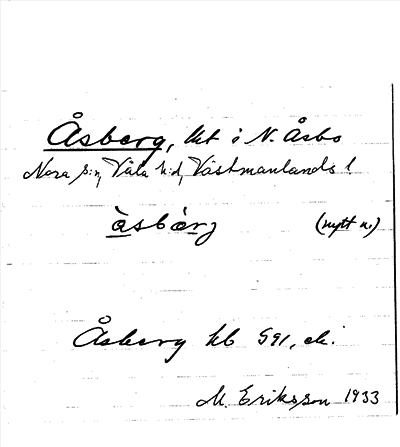 Åsberg, lht i N. Åsbo
Nora s:n, Våla h:d, Västmanlands l.
àsbàrj (nytt n.)
Åsberg hb 591, ek.
M. Eriksson 1933